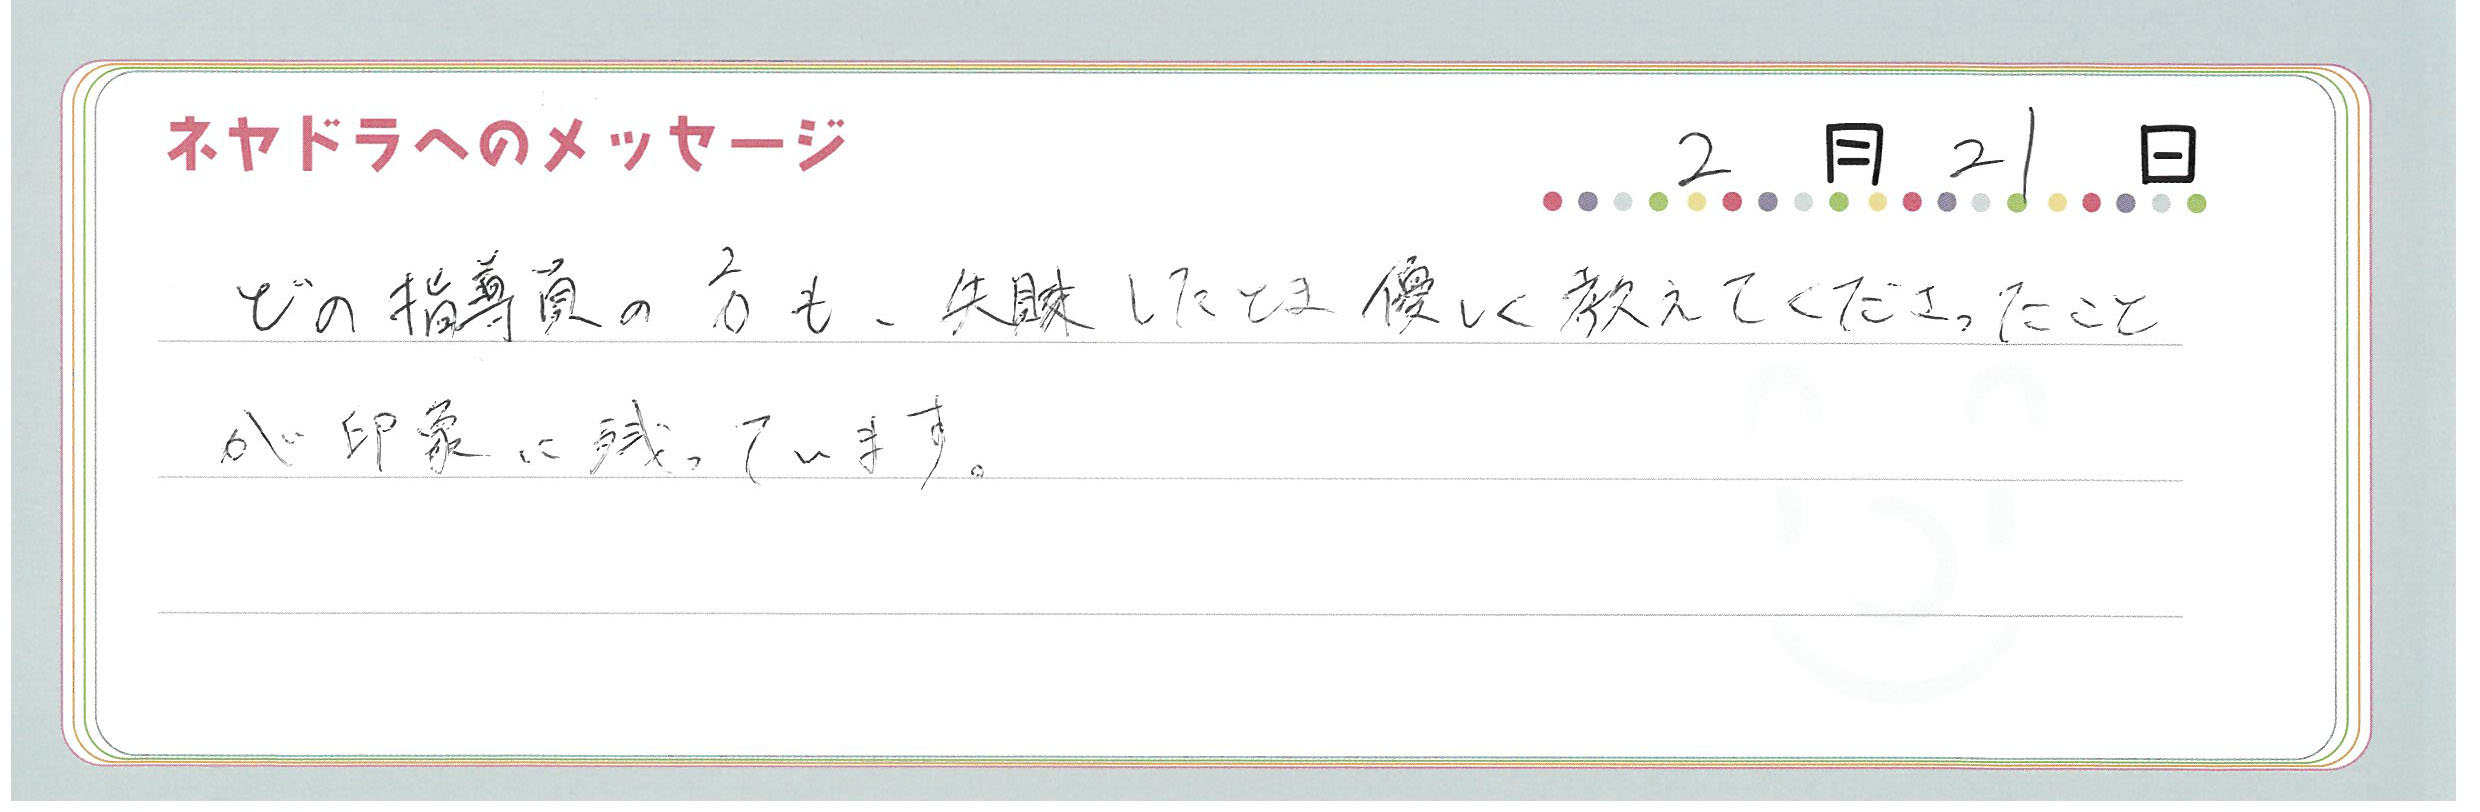 ネヤドラへのメッセージ
2月21日
どの指導員の方も、失敗したとき優しく教えてくださったこと
が印象に残っています。